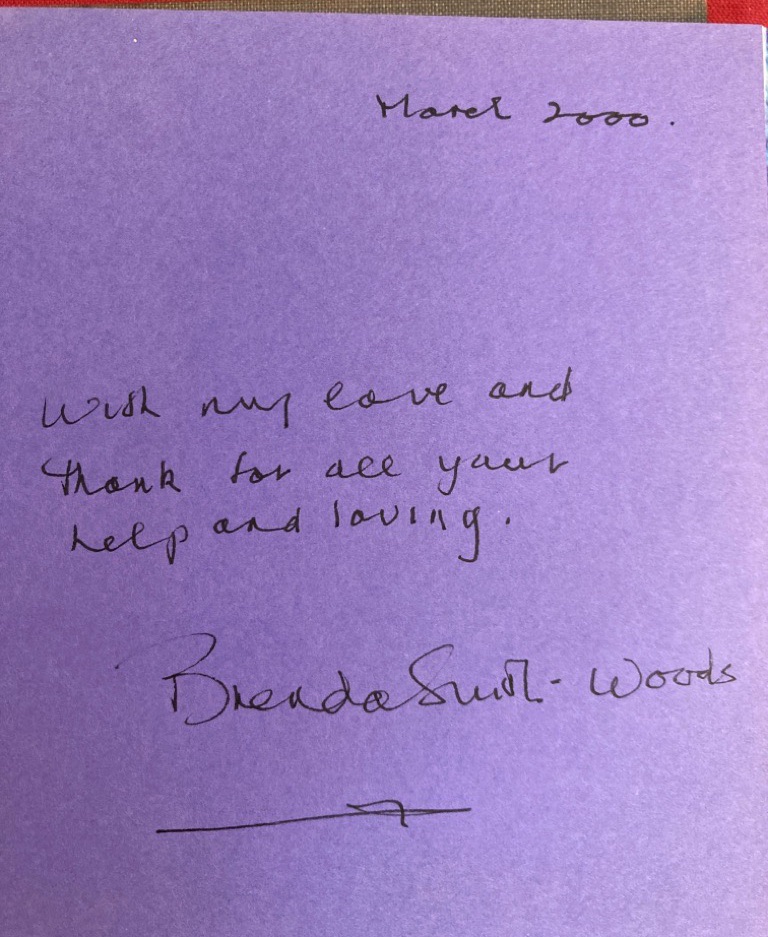 March 2000.
With my love and
thank for all your
help and loving.
Brenda Smith-Woods